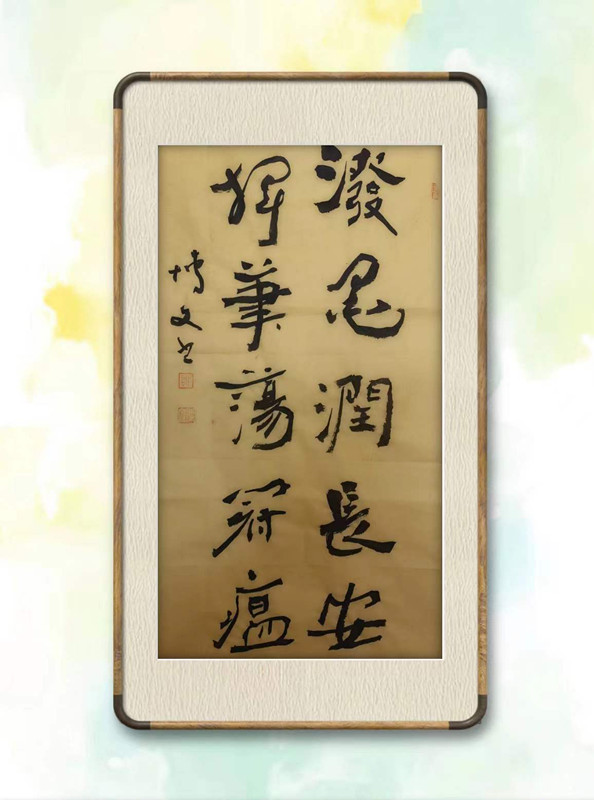 潑墨潤長安
揮筆蕩冠瘟
博文书